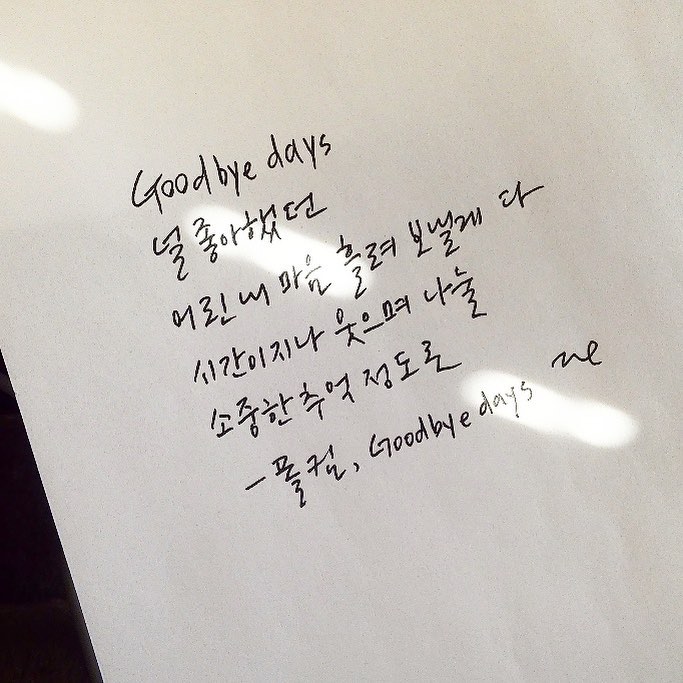 Goodbye days
널 좋아했던
어린 내 마음 흘려 보낼게 다
시간이지나 웃으며 나눌
소중한 추억 정도로
-플컴, Goodbye days